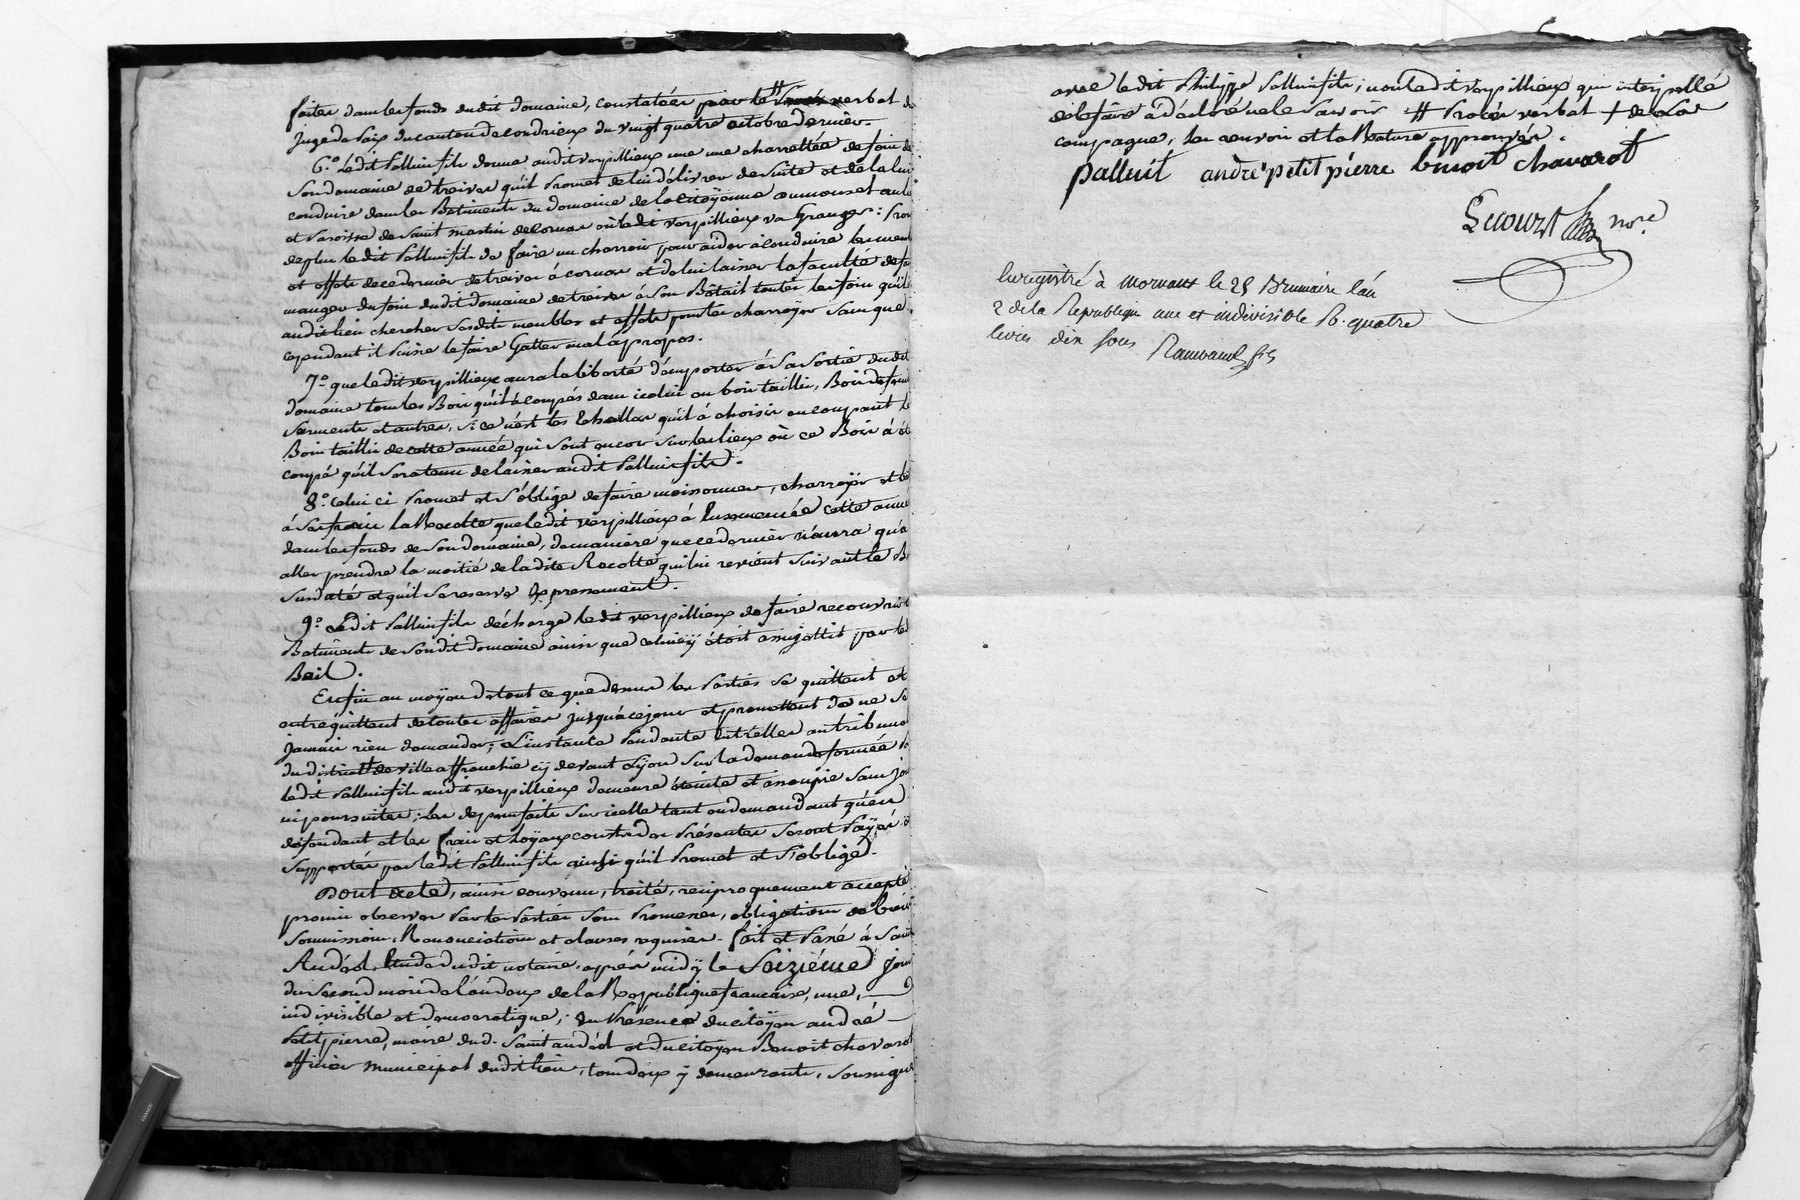 faites dans les fonds dudit domaine, constatées par le # verbal du
juge de Paix du canton de condrieux du vingt quatre octobre dernier.
6.° Ledit Palluit fils donne audit verpillieux une charrettée de foin de
son domaine de treives qu'il Promet de lui délivrer de suite et de la lui
conduire dans les Batiments du domaine de la citoÿenne
et Paroisse de Saint martin de cornas où ledit verpillieux va Granger: Prom
de plus ledit Palluit fils de faire un charroir pour aider à conduire les meub
et effets de ce dernier de treives à cornas et de lui laisser la faculté de fa
manger du foin dudit domaine de treives à son Bétail toutes les fois qu'il
audit lieu chercher sesdits meubles et effets pour les charroÿer sans que
cependant il Puisse le faire Gatter mal à propos.
7.° que ledit verpillieux aura la liberté d'emporter à sa sortie dudit
domaine tous les Bois qu'il à coupés dans icelui en bois taillis, Bois de
sarments et autres, si ce n'est les Echallas qu'il à choisis en coupant le
Bois taillis de cette année qui sont encor sur les lieux où ce Bois à été
coupé qu'il sera tenu de laisser audit Palluit fils.
8.° celui ci Promet et s'oblige de faire moissonner, charroÿer et
à ses frais la Récolte que ledit verpillieux à Ensemencée cette anné
dans les fonds de son domaine, de maniere que ce dernier n'aura qu'à
aller prendre la moitié de ladite Récolte qui lui revient suivant le B
susdaté et qu'il se reserve Expressement.
9.° Ledit Palluit fils décharge ledit verpillieux de faire recouvrir les
Batiments de sondit domaine ainsi que celui cÿ étoit assujettit par le
Bail.
Enfin au moÿen de tout ce que dessus les Parties se quittent et
entrequittent de toutes affaires jusqu'à ce jour et promettent de ne se
jamais rien demander; L'instance Pendante entr'elles au tribunal
du district de ville affranchie cÿ devant Lÿon sur la demande formée P
ledit Palluit fils audit verpillieux demeure éteinte et assoupie sans
ni poursuites; les depens faits sur icelle tant en demandant qu'en
défendant et les frais et loÿaux couts des Présentes seront Paÿés et
supportés par ledit Palluit fils ainsi qu'il Promet et s'oblige.
Dont acte, ainsi convenu, traité, réciproquement accepté
promis observer Par les Parties sous Promesses, obligations de biens
soumissions, Renonciations et clauses requises. fait et Passé à Saint
Andéol, Etude dudit notaire, après midÿ le Seizième jour
du second mois de l'an deux de la République française, une,
indivisible et democratique; En Présence du citoÿen andré
Petitpierre, maire dud. Saint andéol et du citoyen Benoit chavarot
officier municipal dudit lieu, tous deux ÿ demeurants, soussignés
avec ledit Philippe Palluit fils, non ledit verpillieux qui interpellé
de le faire à déclaré ne le savoir # Procès verbal + de la
compagne, les renvois et la Rature approuvés.
palluit andré petit pierre benoit chavarot
Lecourt nore
Enregistré à mornant le 25 Brumaire l'an
2 de la République une et indivisible R. quatre
livres dix sous